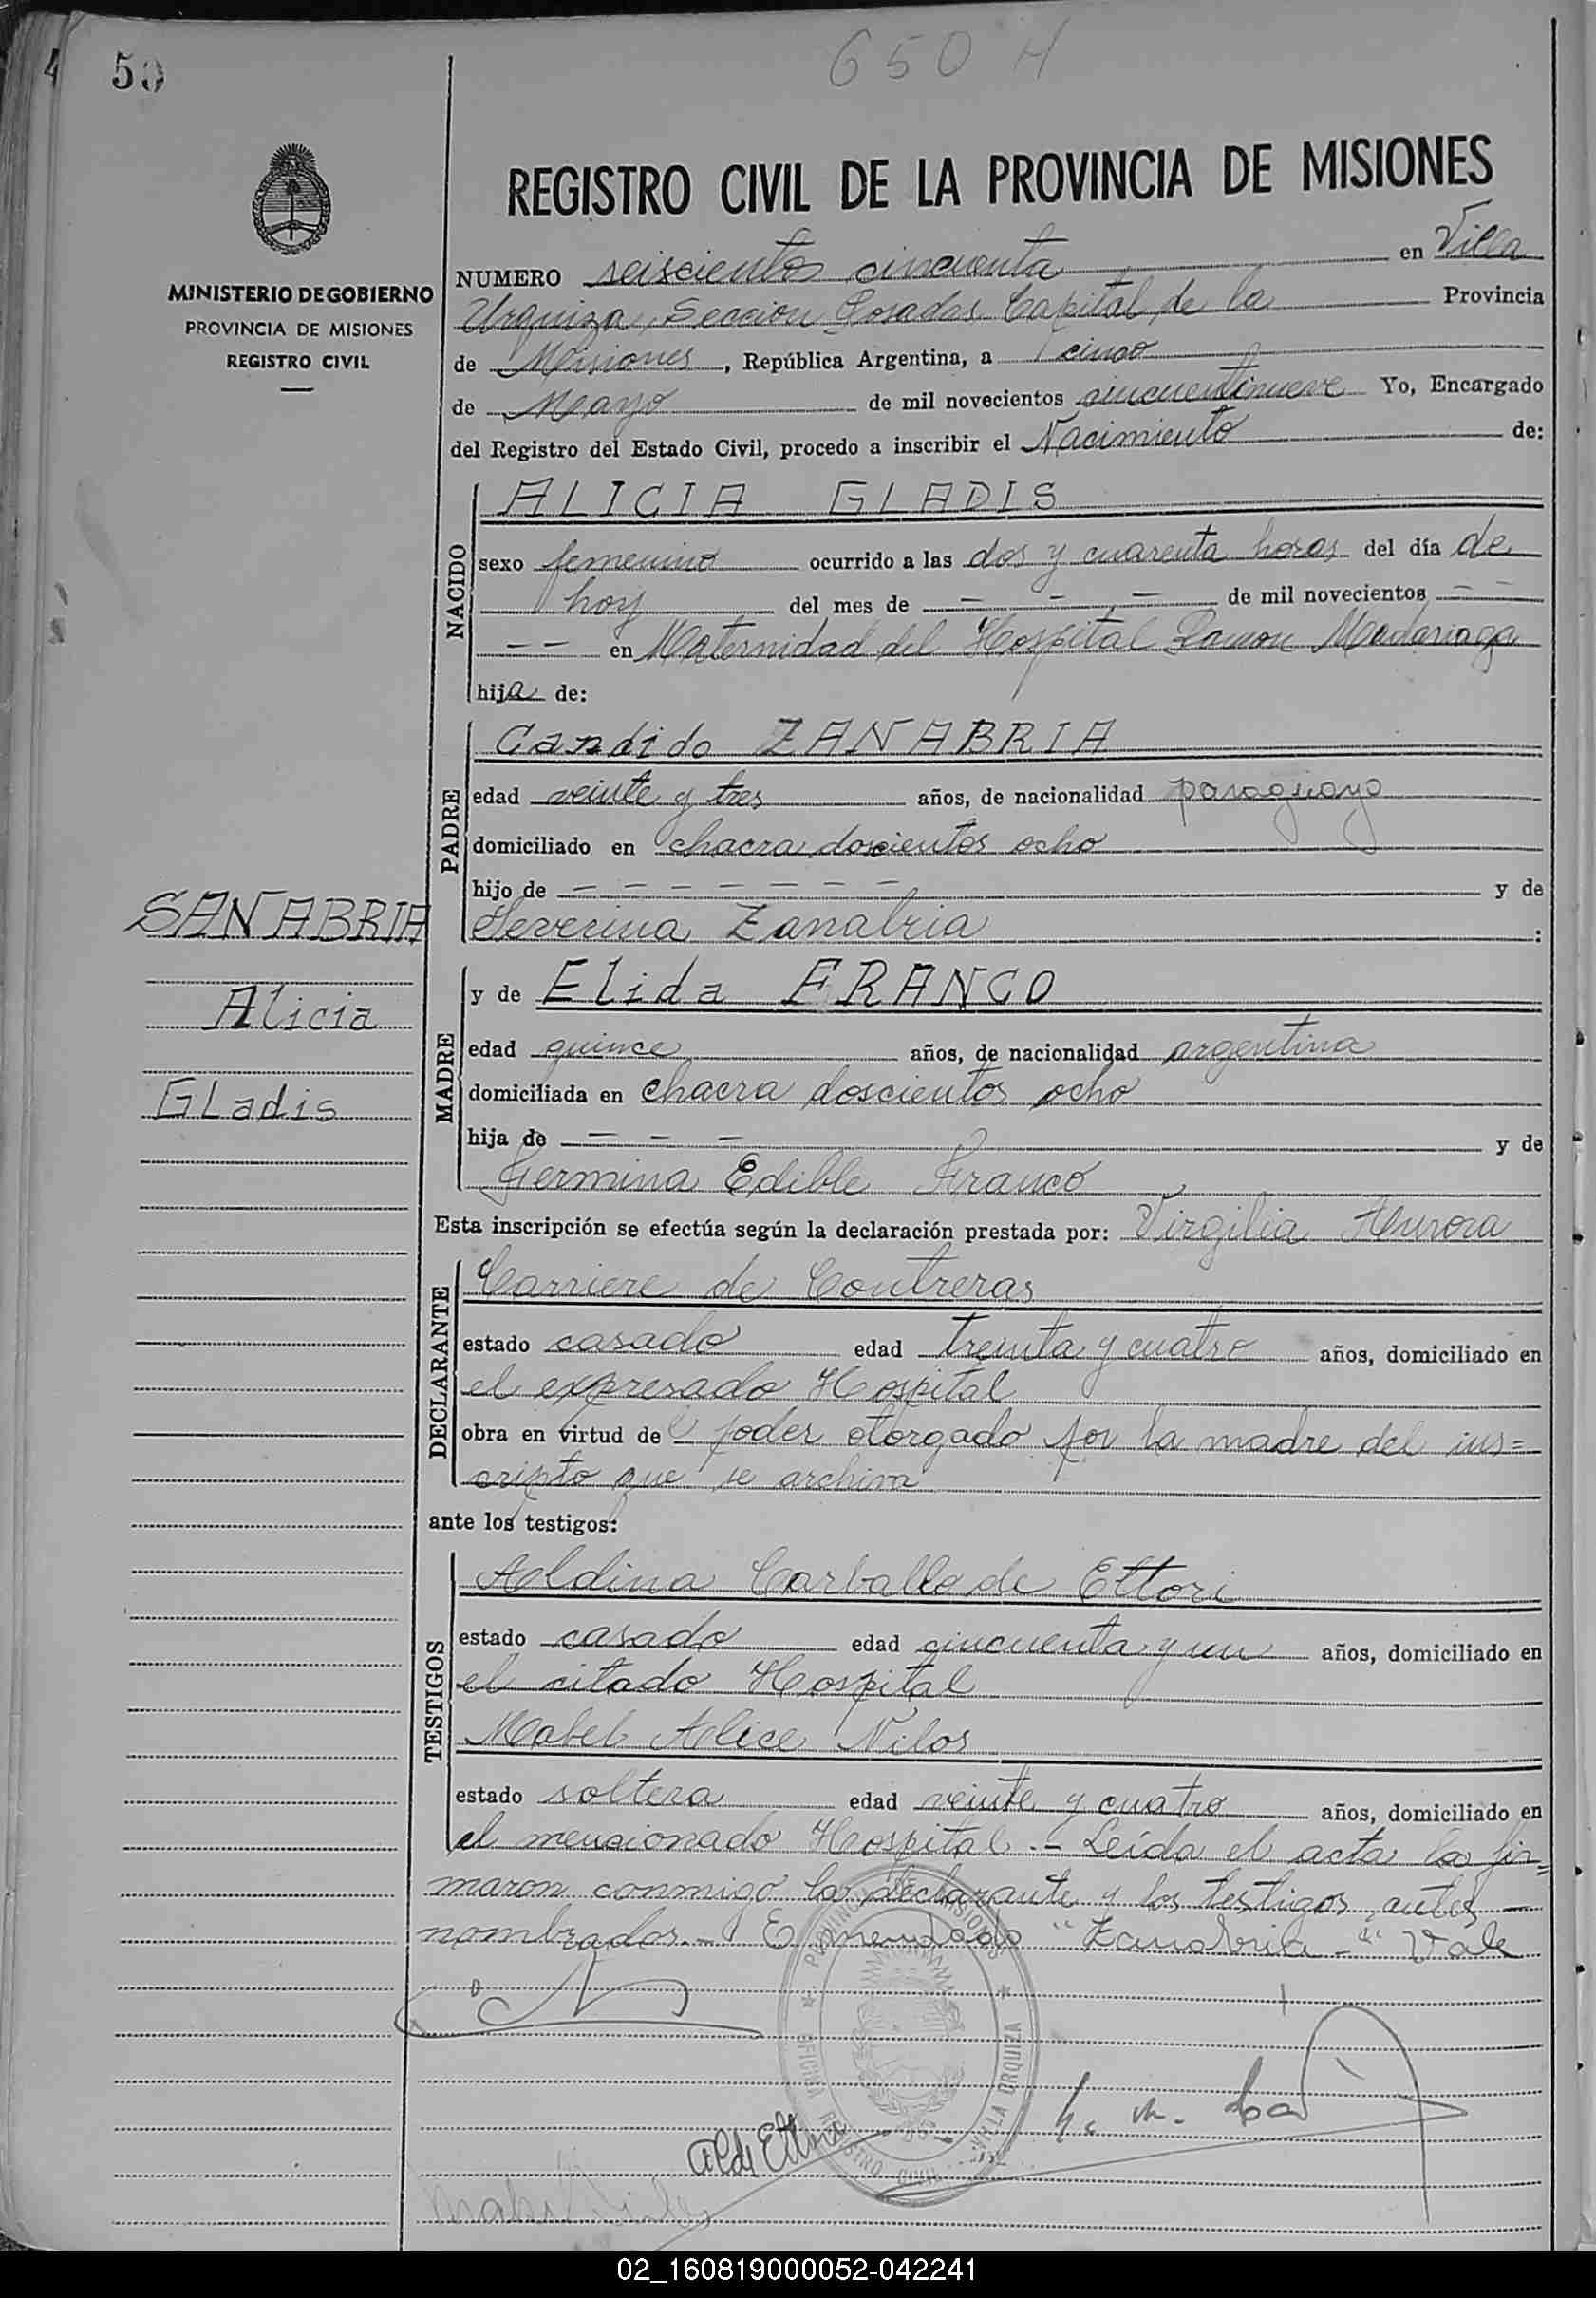 50
650 H
REGISTRO CIVIL DE LA PROVINCIA DE MISIONES
MINISTERIO DE GOBIERNO
PROVINCIA DE MISIONES
REGISTRO CIVIL
NUMERO seiscientos cincuenta en Villa
Urquiza, Seccion Posadas Capital de la Provincia
de Misiones, República Argentina, a cinco
de Mayo de mil novecientos cincuentinueve Yo, Encargado
del Registro del Estado Civil, procedo a inscribir el Nacimiento de:
NACIDO
ALICIA GLADIS
sexo femenino ocurrido a las dos y cuarenta horas del día de
hoy del mes de - - - de mil novecientos - -
- - en Maternidad del Hospital Ramon Madariaga
hija de:
PADRE
Candido ZANABRIA
edad veinte y tres años, de nacionalidad paraguayo
domiciliado en chacra doscientos ocho
hijo de - - - - - - - y de
Severina Zanabria :
SANABRIA
Alicia
Gladis
MADRE
y de Elida FRANCO
edad quince años, de nacionalidad argentina
domiciliada en chacra doscientos ocho
hija de - - - y de
Fermina Edible Franco
Esta inscripción se efectúa según la declaración prestada por: Virgilia Aurora
DECLARANTE
Carriere de Contreras
estado casado edad treinta y cuatro años, domiciliado en
el expresado Hospital
obra en virtud de poder otorgado por la madre del ins=
cripto que se archiva
ante los testigos:
TESTIGOS
Aldina Carballo de Ettori
estado casado edad cincuenta y un años, domiciliado en
el citado Hospital
Mabel Alice Nilos
estado soltera edad veinte y cuatro años, domiciliado en
el mencionado Hospital.- Leída el acta la fir=
maron conmigo la declarante y los testigos antes
nombrados.- Enmendado "Zanabria-" Vale
PROVINCIA DE MISIONES
OFICINA REGISTRO CIVIL VILLA URQUIZA
02_160819000052-042241